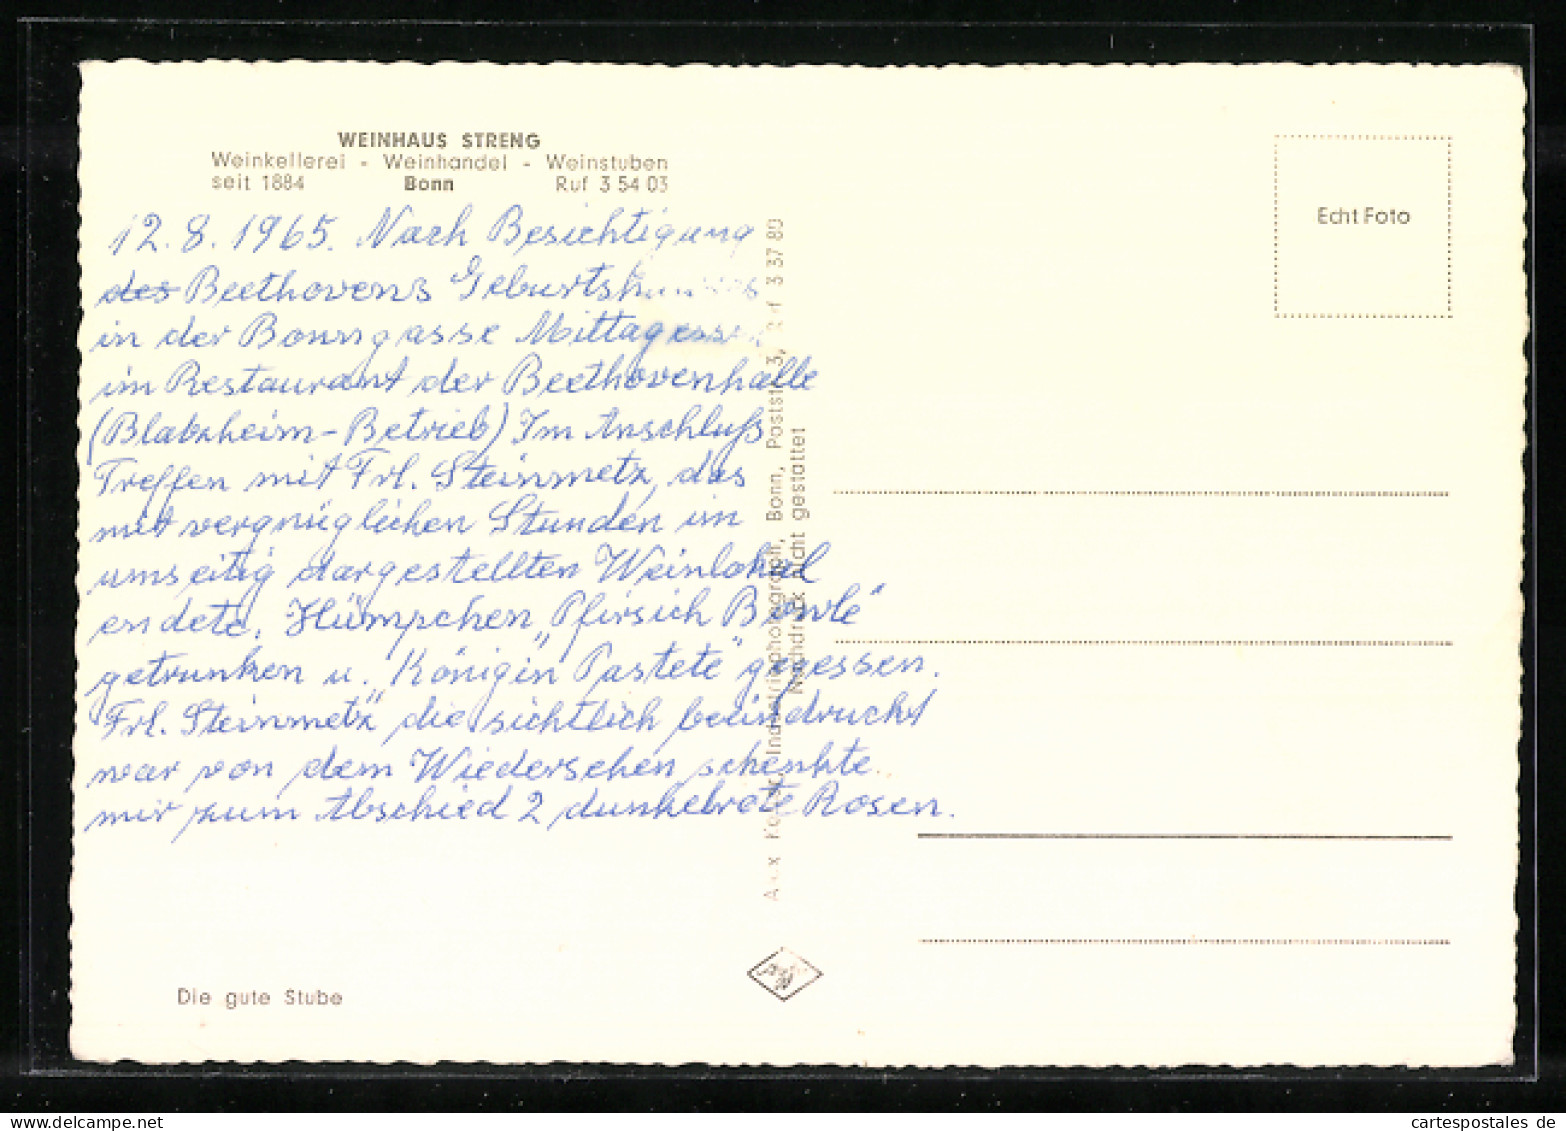 WEINHAUS STRENG
Weinkellerei - Weinhandel - Weinstuben
seit 1884 Bonn Ruf 3 54 03
12. 8. 1965. Nach Besichtigung
des Beethovens Geburtshauses
in der Bonngasse Mittagessen
im Restaurant der Beethovenhalle
(Blatzheim-Betrieb) Im Anschluß
Treffen mit Frl. Steinmetz, das
mit vergnüglichen Stunden im
umseitig dargestellten Weinlokal
endete. Hümpchen „Pfirsich Bowle"
getrunken u. „Königin Pastete" gegessen.
Frl. Steinmetz, die sichtlich beeindruckt
war von dem Wiedersehen schenkte
mir zum Abschied 2 dunkelrote Rosen.
Die gute Stube
Industriephotograph, Bonn, Poststr. 3, Ruf 3 37 80
Nachdruck nicht gestattet
Echt Foto
cartespostales de